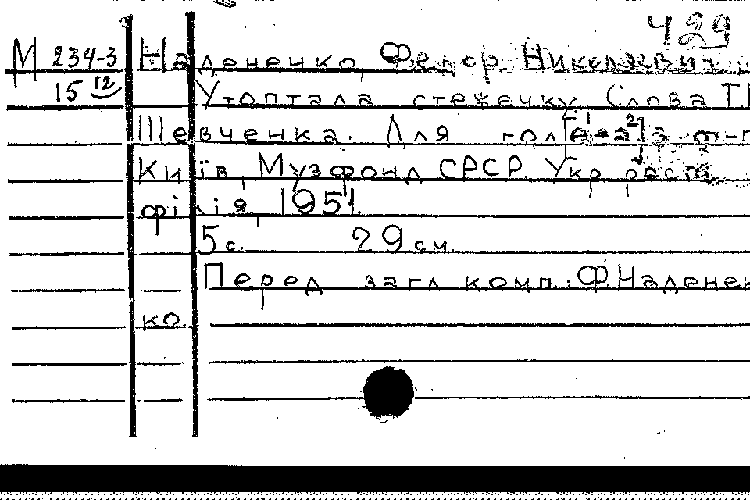 429
М 234-3 Надененко Федор Николаевич
15 12 Утоптала стежечку Слова Т.
Шевченка. Для голоса
Київ, Музфонд СРСР Укр
філія, 1951
5 с. 29 см.
Перед загл комп.: Ф. Надененко
ко.